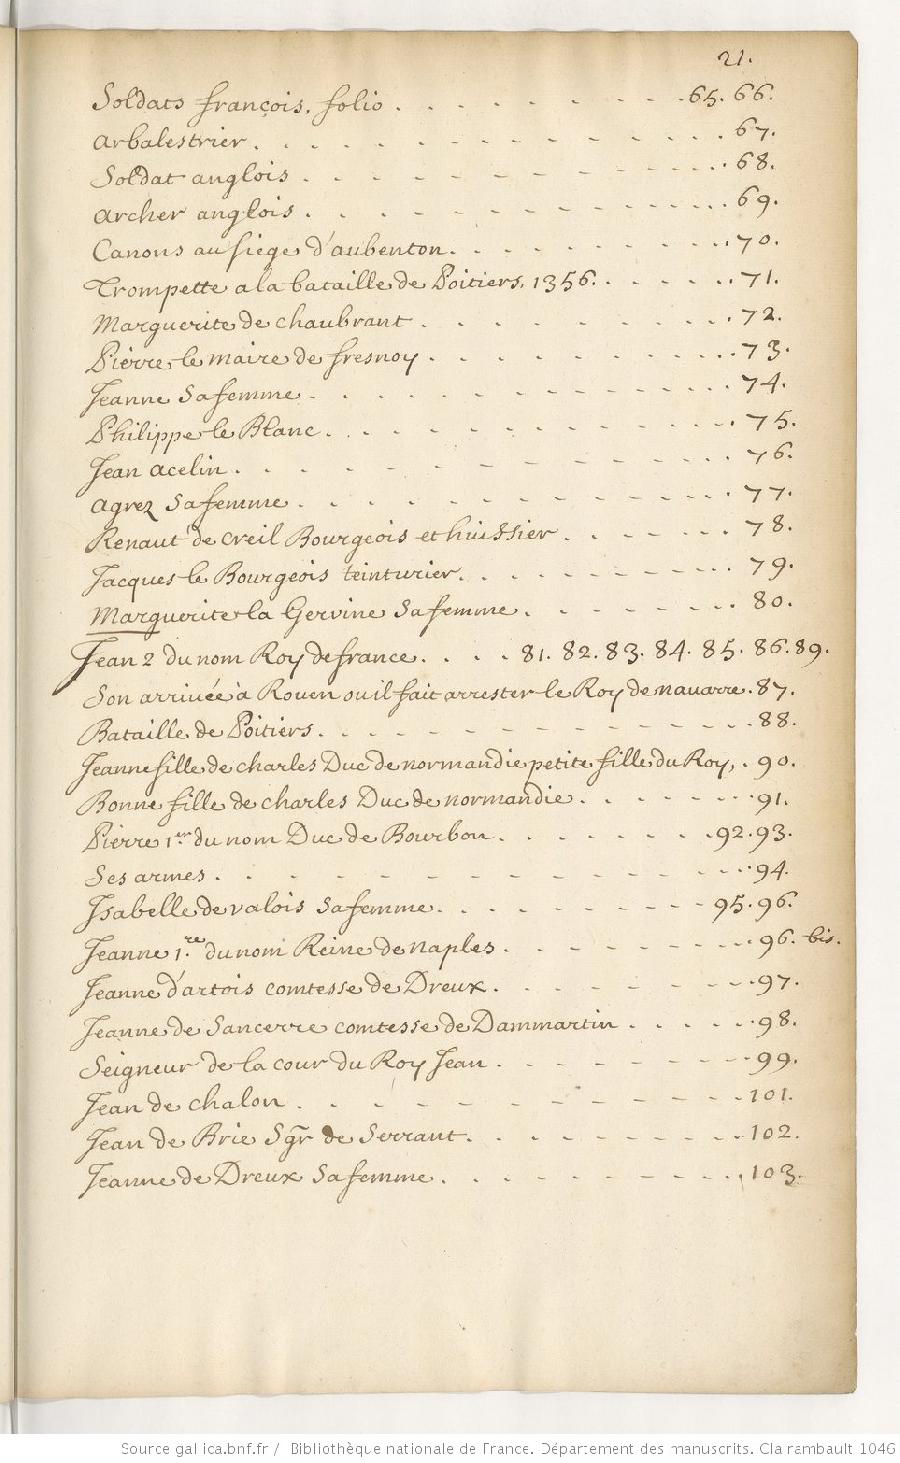 21.
Soldats françois. folio . . . . . . . . . 65. 66.
Arbalestrier . . . . . . . . . . . . 67.
Soldat anglois . . . . . . . . . . . 68.
Archer anglois . . . . . . . . . . . 69.
Canons au siege d'aubenton . . . . . . . . 70.
Trompette a la bataille de Poitiers. 1356. . . . . . 71.
Marguerite de chaubrant . . . . . . . . . 72.
Pierre le maire de fresnoy . . . . . . . . . 73.
Jeanne sa femme . . . . . . . . . . . 74.
Philippe le Blanc . . . . . . . . . . . 75.
Jean acelin . . . . . . . . . . . . 76.
agnez sa femme . . . . . . . . . . . 77.
Renaut de creil Bourgeois et huissier . . . . . . 78.
Jacques le Bourgeois teinturier . . . . . . . . 79.
Marguerite la Gervine sa femme . . . . . . . 80.
Jean 2 du nom Roy de france . . . . 81. 82. 83. 84. 85. 86. 89.
Son arrivée à Rouen ou il fait arrester le Roy de navarre . 87.
Bataille de Poitiers . . . . . . . . . . . 88.
Jeanne fille de charles Duc de normandie petite fille du Roy, . 90.
Bonne fille de charles Duc de normandie . . . . . . 91.
Pierre 1.er du nom Duc de Bourbon . . . . . . . 92. 93.
Ses armes . . . . . . . . . . . . . 94.
Isabelle de valois sa femme . . . . . . . . 95. 96.
Jeanne 1.re du nom Reine de naples . . . . . . . 96. bis.
Jeanne d'artois comtesse de Dreux . . . . . . . 97.
Jeanne de Sancerre comtesse de Dammartin . . . . . 98.
Seigneur de la cour du Roy Jean . . . . . . . 99.
Jean de chalon . . . . . . . . . . . 101.
Jean de Brie Sgr de Serrant . . . . . . . . 102.
Jeanne de Dreux sa femme . . . . . . . . . 103.
Source gallica.bnf.fr / Bibliothèque nationale de France. Département des manuscrits. Clairambault 1046